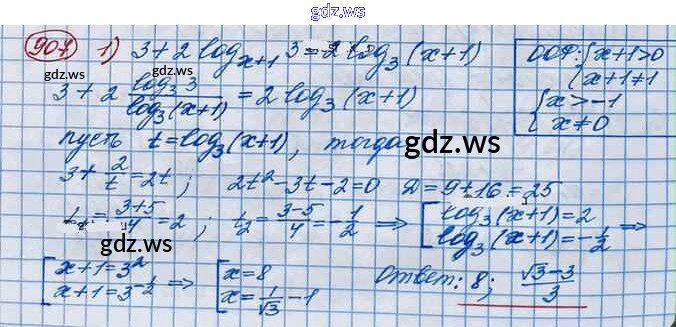 gdz.ws
907 1) 3+2log_{x+1} 3=2log_3(x+1)
ООФ: {x+1>0
{x+1≠1
{x>-1
{x≠0
3+2 log_3 3/log_3(x+1) = 2log_3(x+1)
gdz.ws
пусть t=log_3(x+1), тогда
gdz.ws
3+2/t=2t; 2t²-3t-2=0 D=9+16=25
t_1=(3+5)/4=2; t_2=(3-5)/4=-1/2 ⇒ [log_3(x+1)=2
[log_3(x+1)=-1/2 ⇒
gdz.ws
[x+1=3²
[x+1=3^{-1/2} ⇒ [x=8
[x=1/√3-1
Ответ: 8; (√3-3)/3
gdz.ws